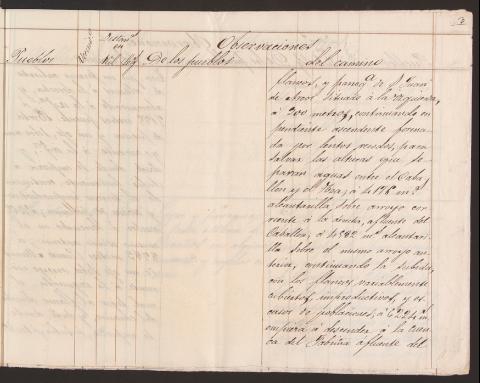 Observaciones
Pueblos Vecinos Distanᵃ en Kil. Mtrˢ De los pueblos del camino
flancos, y parroqᵃ de S. Juan
de situado á la izquierda,
á 200 metros, continuando en
pendiente ascendente forma-
da por lentos pendos, para
salvar las alturas que se-
paran aguas entre el Caba-
llon y el á 4178 mˢ
alcantarilla sobre arroyo cor-
riente á la dᵉʳᵉcha, afluente del
Caballon; á 4582 mˢ alcantari-
lla sobre el mismo arroyo an-
terior, continuando la subida,
con los flancos variablemente
cubiertos, improductivos, y es-
casos de poblaciones; á 6224 mˢ
empieza á descender á la cuen-
ca del afluente del